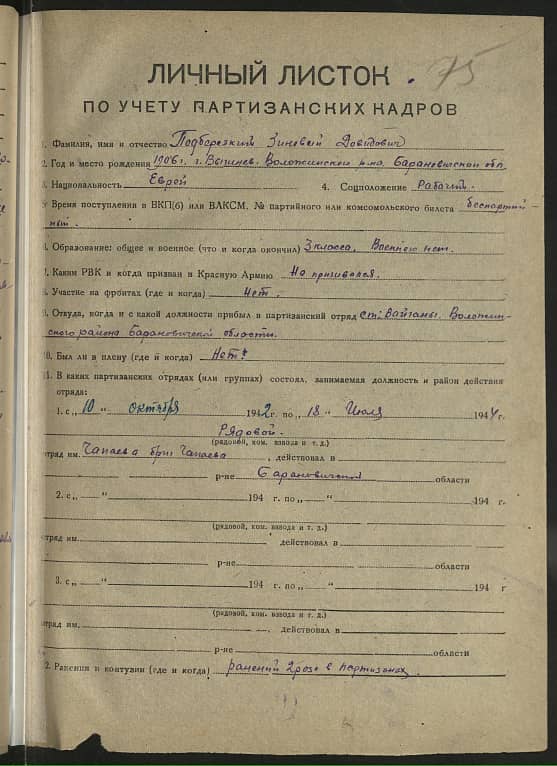 75
ЛИЧНЫЙ ЛИСТОК
ПО УЧЕТУ ПАРТИЗАНСКИХ КАДРОВ
1. Фамилия, имя и отчество Подберезкий Зиновей Довидович
2. Год и место рождения 1906 г. г. Вишнев. Воложинский р-на. Барановичской обл.
3. Национальность Еврей 4. Соцположение Рабочий.
5. Время поступления в ВКП(б) или ВЛКСМ, № партийного или комсомольского билета беспартий-
ный.
6. Образование: общее и военное (что и когда окончил) 3 класса, Военное нет.
7. Каким РВК и когда призван в Красную Армию Не призивался.
8. Участие на фронтах (где и когда) Нет.
9. Откуда, когда и с какой должности прибыл в партизанский отряд ст. Вайганы. Воложин-
ского района Барановичской области.
10. Был ли в плену (где и когда) Нет
11. В каких партизанских отрядах (или группах) состоял, занимаемая должность и район действия
отряда:
1. с „10 “ октября 1942 г. по „18 “ Июля 1944 г.
Рядовой.
(рядовой, ком. взвода и т. д.)
отряд им. Чапаева бриг Чапаева, действовал в
р-не Барановичской области
2. с „ “ 194 г. по „ “ 194 г.
(рядовой, ком. взвода и т. д.)
отряд им. , действовал в
р-не области
3. с „ “ 194 г. по „ “ 194 г
(рядовой, ком. взвода и т. д.)
отряд им. , действовал в
р-не области
2. Ранения и контузии (где и когда) ранений 2 раза в партизанах